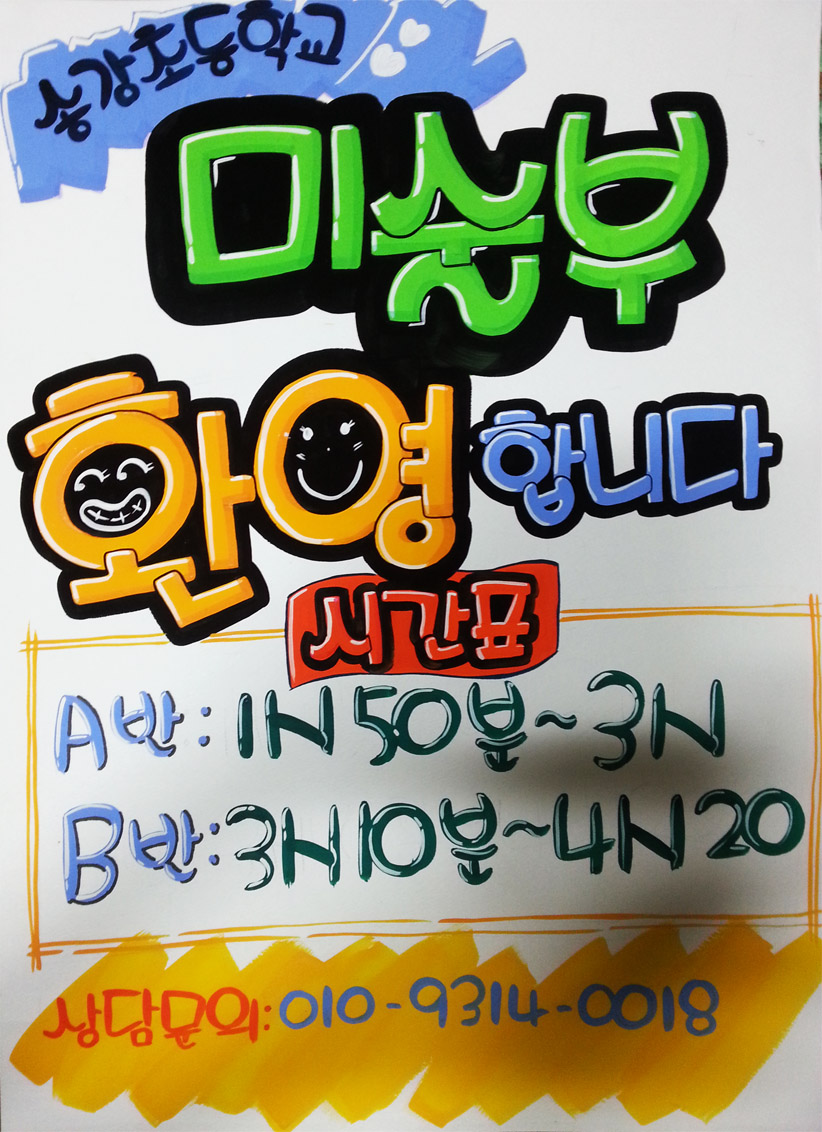 송강초등학교
미술부
환영합니다
시간표
A반:1시50분~3시
B반:3시10분~4시20
상담문의:010-9314-0018